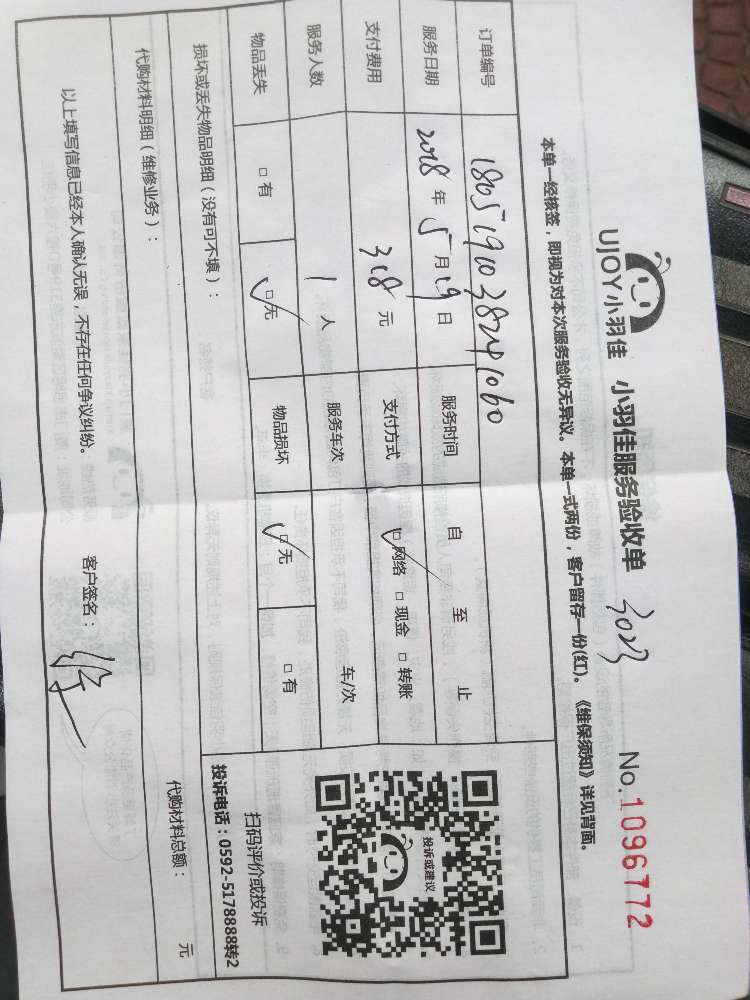 UJOY小羽佳 小羽佳服务验收单 3023 No.1096772
本单一经核签，即视为对本次服务验收无异议。本单一式两份，客户留存一份(红)。《维保须知》详见背面。
订单编号 1805191038241060
服务日期 2018年5月19日 服务时间 自 至 止
支付费用 318元 支付方式 □网络 □现金 □转账
服务人数 1人 服务车次 车/次
物品丢失 □有 □无 物品损坏 □无 □有
投诉或建议
扫码评价或投诉
投诉电话：0592-5178888转2
损坏或丢失物品明细（没有可不填）：
代购材料明细（维修业务）： 代购材料总额： 元
以上填写信息已经本人确认无误，不存在任何争议纠纷。 客户签名：